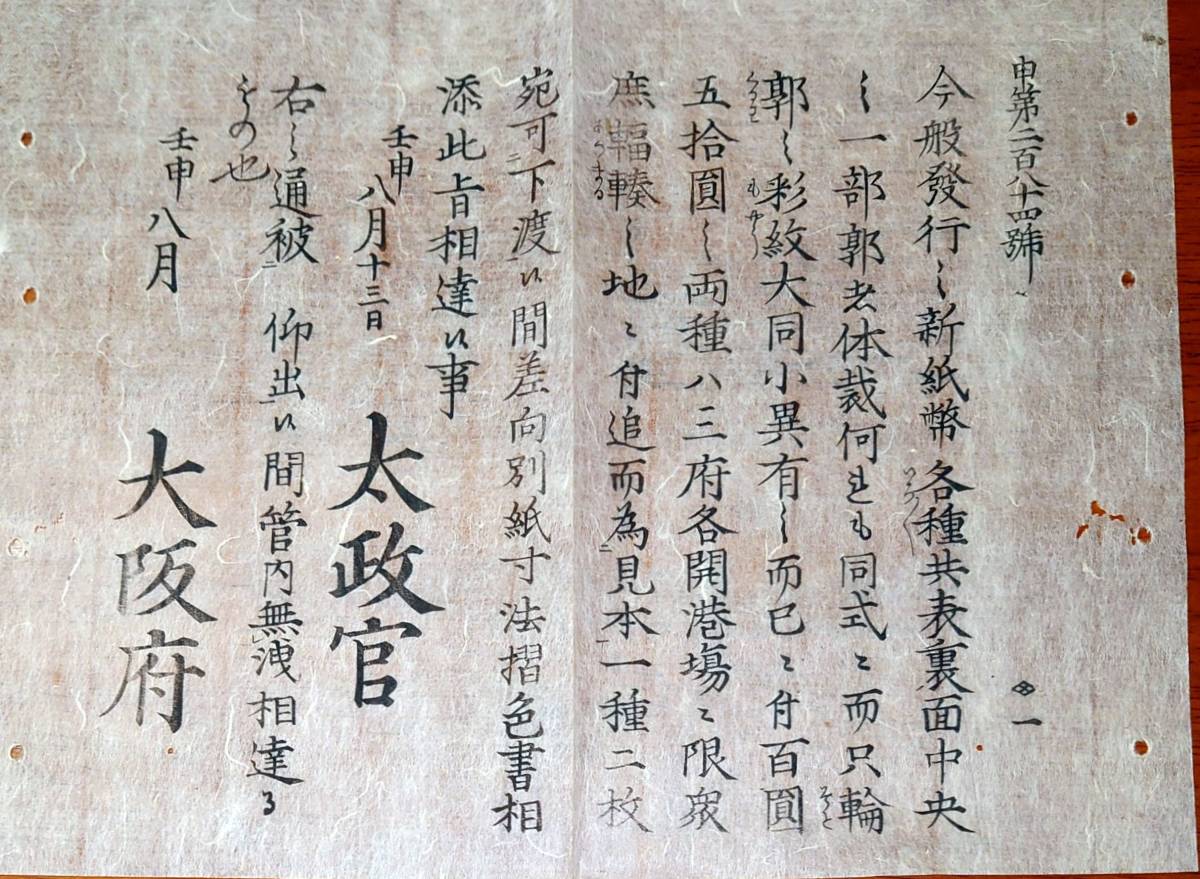 申第二百八十四號
一
今般發行之新紙幣各種共表裏面中央
之一部郭者体裁何れも同式ニ而只輪
郭之彩紋大同小異有之而已ニ付百圓
五拾圓之両種ハ三府各開港場ニ限衆
庶輻輳之地ニ付追而為見本一種二枚
宛可下渡候間差向別紙寸法摺色書相
添此旨相達候事
壬申
八月十三日
太政官
右之通被 仰出候間管内無洩相達る
もの也
壬申
八月
大阪府